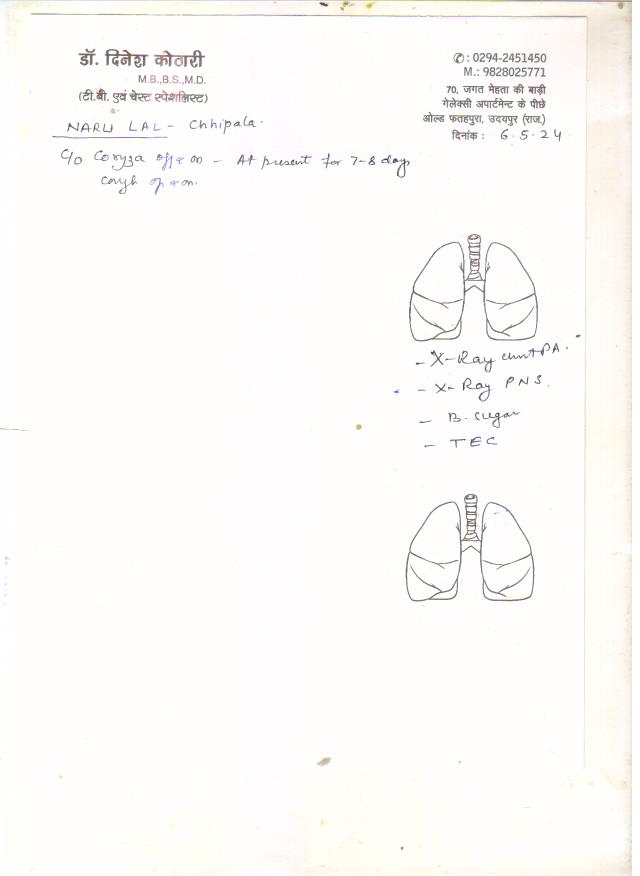 डॉ. दिनेश कोठारी
M.B.,B.S.,M.D.
(टी.बी. एवं चेस्ट स्पेशलिस्ट)
✆ : 0294-2451450
M.: 9828025771
70, जगत मेहता की बाड़ी
गेलेक्सी अपार्टमेन्ट के पीछे
ओल्ड फतहपुरा, उदयपुर (राज.)
दिनांक : 6.5.24
NARU LAL - Chhipala.
C/o Coryza off & on - At present for 7-8 days
Cough off & on.
- X-Ray chest PA.
- X-Ray PNS.
- B. Sugar
- TEC